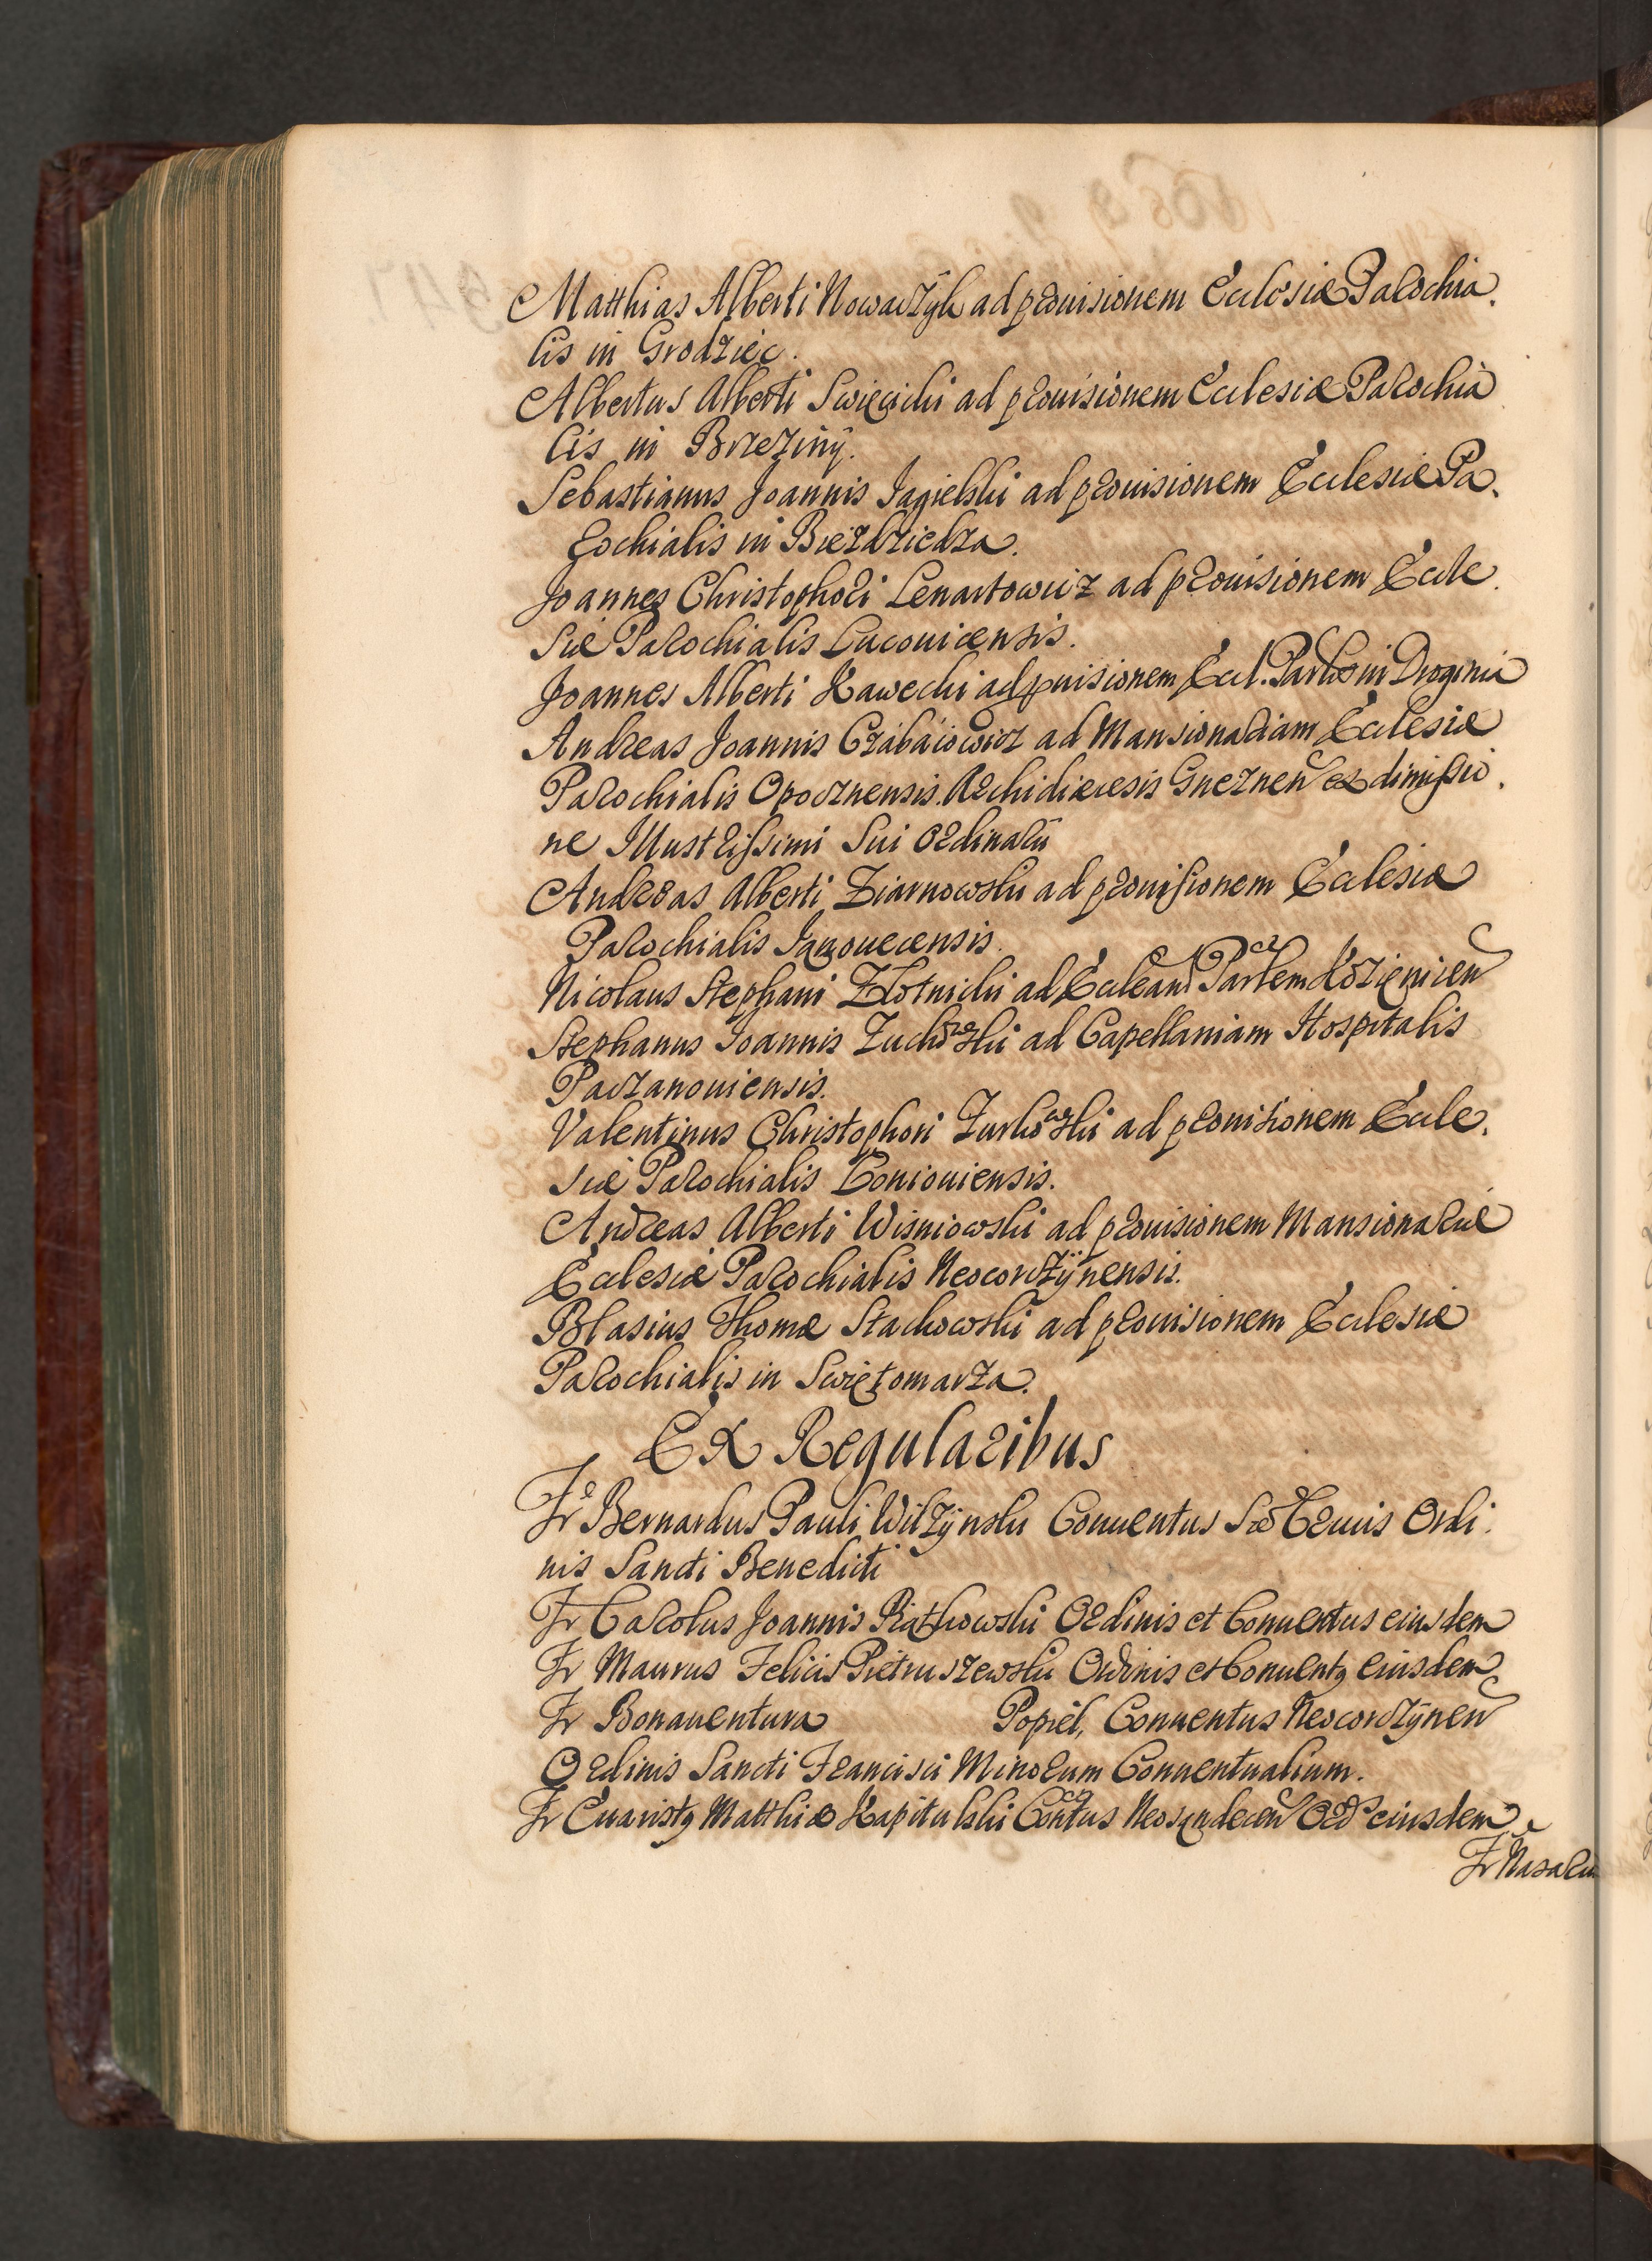 Matthias Alberti Nowaczÿk ad prouisionem Ecclesiæ Parochia
lis in Grodziec.
Albertus Alberti Swięcicki ad prouisionem Ecclesiæ Parochia
lis in Brzezinÿ.
Sebastianus Joannis Jagielski ad prouisionem Ecclesiæ Pa
rochialis in Bieździedza.
Joannes Christophori Lenartowicz ad prouisionem Eccle
siæ Parochialis Luconicensis.
Joannes Alberti Kawecki ad puisionem Eccl. Parlis in Droginia
Andreas Joannis Czabaiowicz ad Mansionariam Ecclesiæ
Parochialis Opocznensis. Archidiæcesis Gneznen ex dimissio
ne Illustrissimi Sui Ordinarii
Andreas Alberti Ziarnowski ad prouisionem Ecclesiæ
Parochialis Janouecensis.
Nicolaus Stephani Złotnicki ad Eccleam Parlem Kozienicen
Stephanus Joannis Zuchowski ad Capellaniam Hospitalis
Paczanouiensis.
Valentinus Christophori Zurkowski ad prouisionem Eccle
siæ Parochialis Łoniouiensis.
Andreas Alberti Wisniowski ad prouisionem Mansionariæ
Ecclesiæ Parochialis Neocorczÿnensis.
Blasius Thomæ Stachowski ad prouisionem Ecclesiæ
Parochialis in Swiętomarza.
Ex Regularibus
Fr Bernardus Pauli Wilzÿnski Conuentus Stæ Crucis Ordi
nis Sancti Benedicti
Fr Carolus Joannis Piątkowski Ordinis et Conuentus eiusdem
Fr Maurus Felicis Pietruszewski Ordinis et Conuentq eiusdem
Fr Bonauentura Popiel, Conuentus Neocorczÿnen
Ordinis Sancti Francisci Minorum Conuentualium.
Fr Euaristq Matthiæ Kapitulski Contus Neosandecen Ord eiusdem